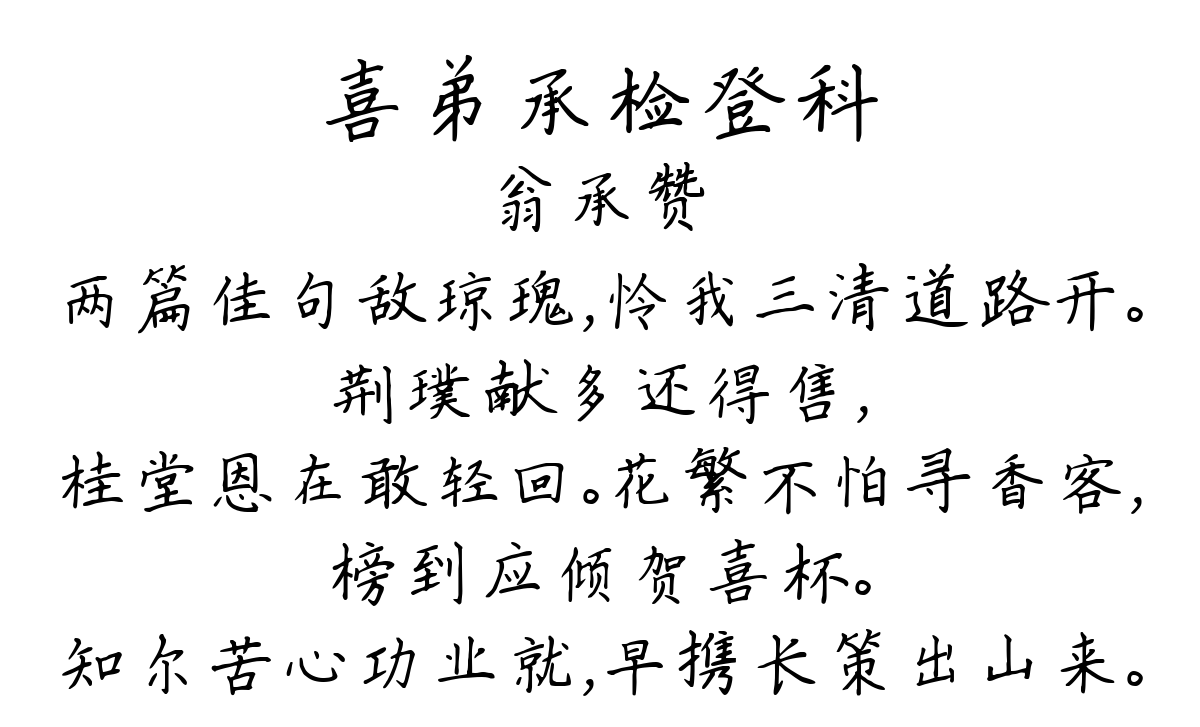 喜弟承检登科
翁承赞
两篇佳句敌琼瑰,怜我三清道路开。
荆璞献多还得售,
桂堂恩在敢轻回。花繁不怕寻香客,
榜到应倾贺喜杯。
知尔苦心功业就,早携长策出山来。